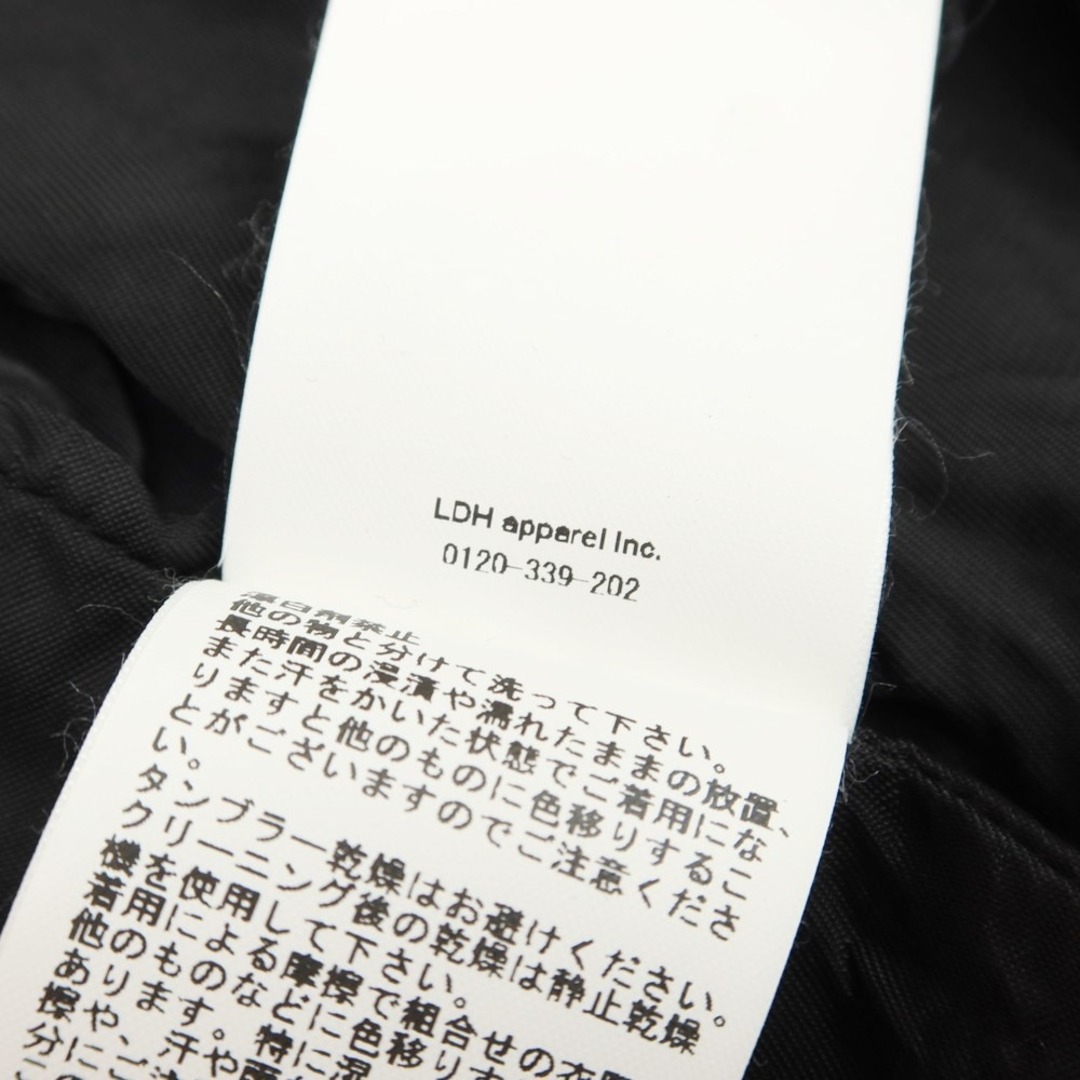 LDH apparel Inc.
0120-339-202
漂白剤禁止
他の物と分けて洗って下さい。
長時間の浸漬や濡れたままの放置、
また汗をかいた状態でご着用にな
りますと他のものに色移りするこ
とがございますのでご注意くださ
い。
タンブラー乾燥はお避けください。
クリーニング後の乾燥は静止乾燥
機を使用して下さい。
着用による摩擦で組合せの衣
他のものなどに色移り
あります。特に湿
擦や、汗や雨
分にご注